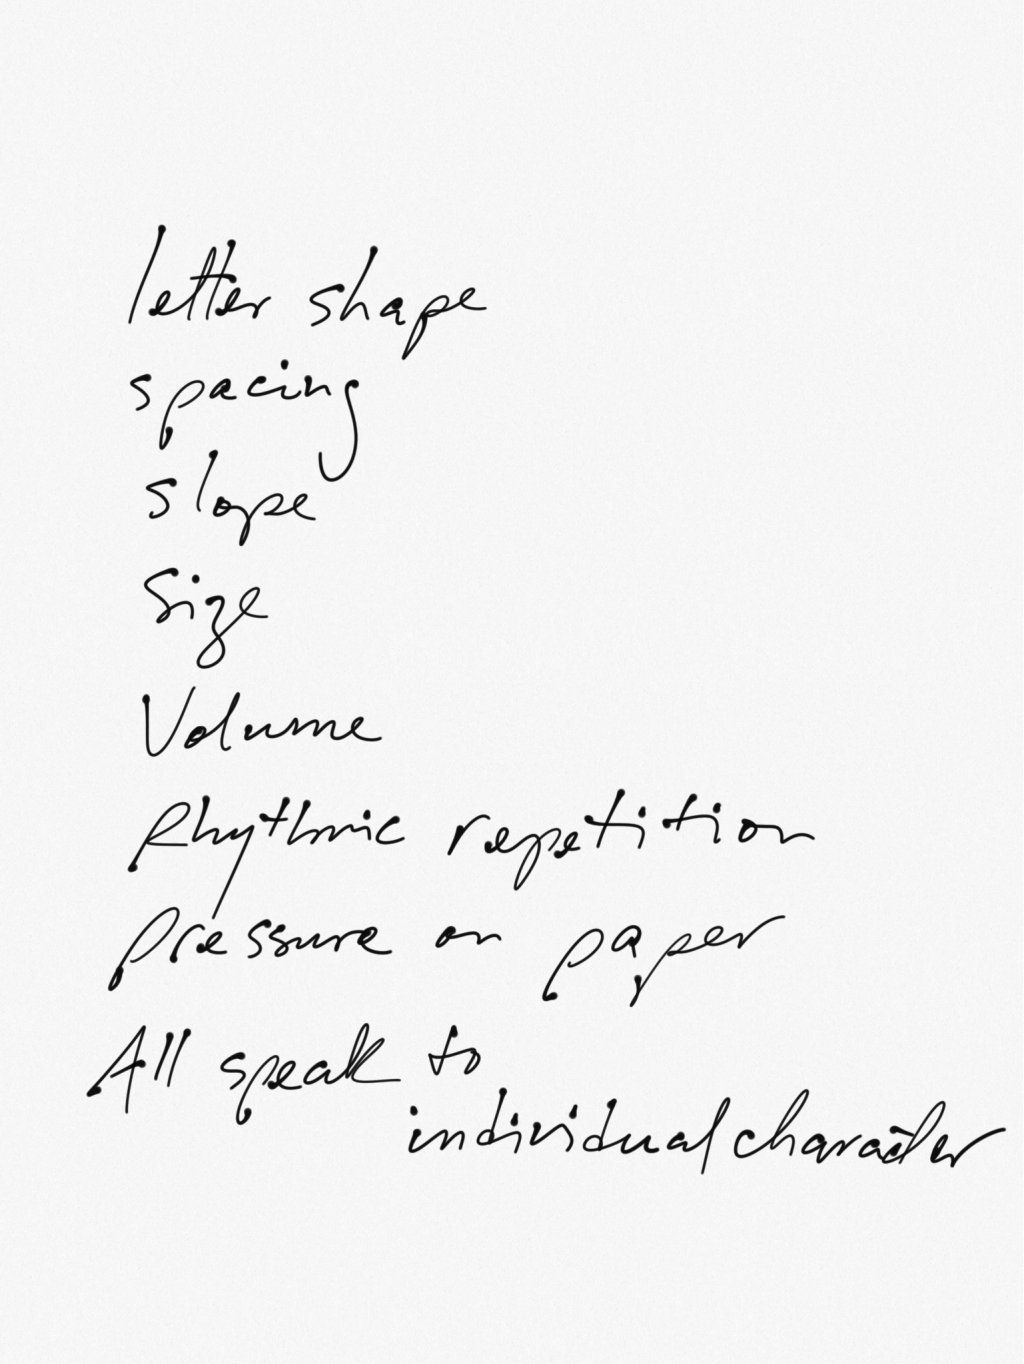 letter shape
spacing
slope
Size
Volume
Rhythmic repetition
pressure on paper
All speak to
individual character